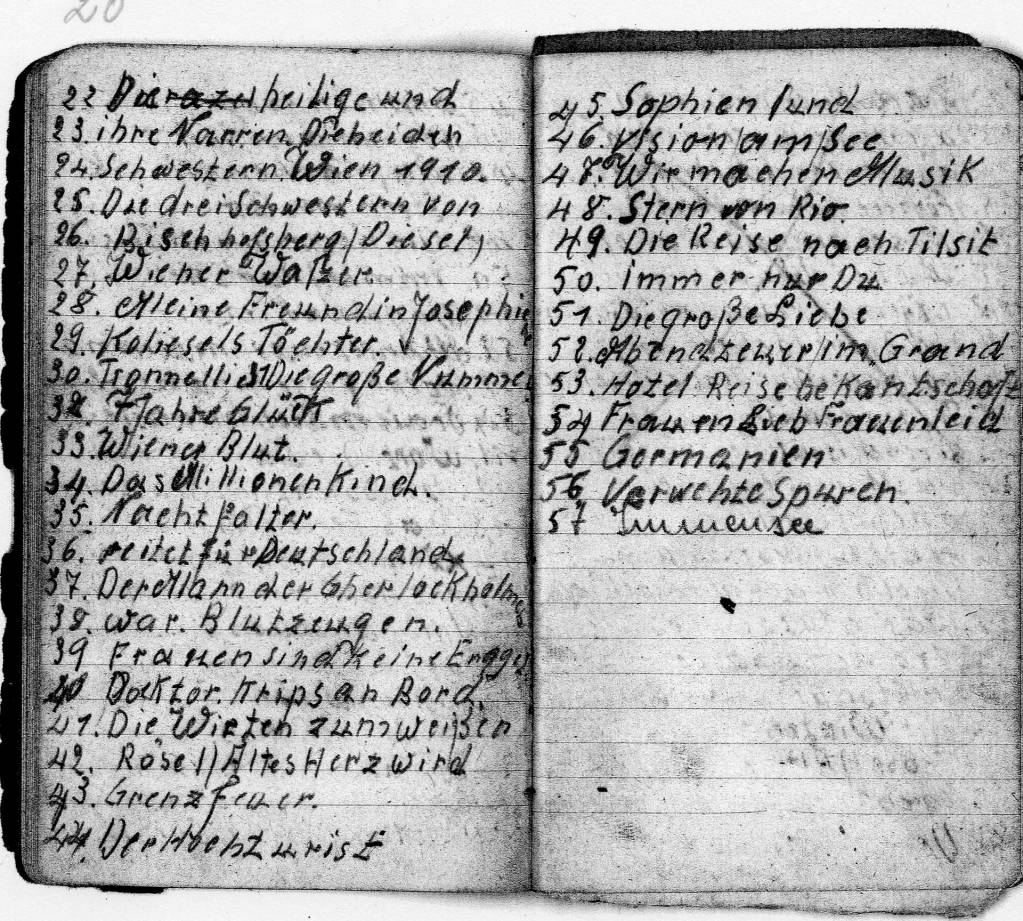 20
22 Die heilige und
23. ihre Narren Die beiden
24. Schwestern. Wien 1910.
25. Die drei Schwestern von
26. Bischhofsberg/Diesel,
27. Wiener Walzer
28. Meine Freundin Josephi
29. Koliesels Töchter.
30. Die große Numme
32 7 Jahre Glück
33. Wiener Blut.
34. Das Millionen Kind.
35. Nacht falter.
36. reitet für Deutschland
37. Der Mann der Sherlock holmes
38. war. Blutzeugen.
39 Frauen sind keine Engge
40 Doktor. Krips an Bord.
41. Die Wirten zum weißen
42. Rösel/Altes Herz wird
43. Grenzfeuer.
44. Der Hochturist
45. Sophien lund
46. Vision/am/See
47. Wir machen Musik
48. Stern von Rio.
49. Die Reise nach Tilsit
50. immer nur Du
51. Die große Liebe
52. Abendzeuer/im Grand
53. Hotel Reise bekantschaft
54 Frauen Lieb Frauenleid
55 Germanien
56, Verwehte Spuren.
57 Immensee